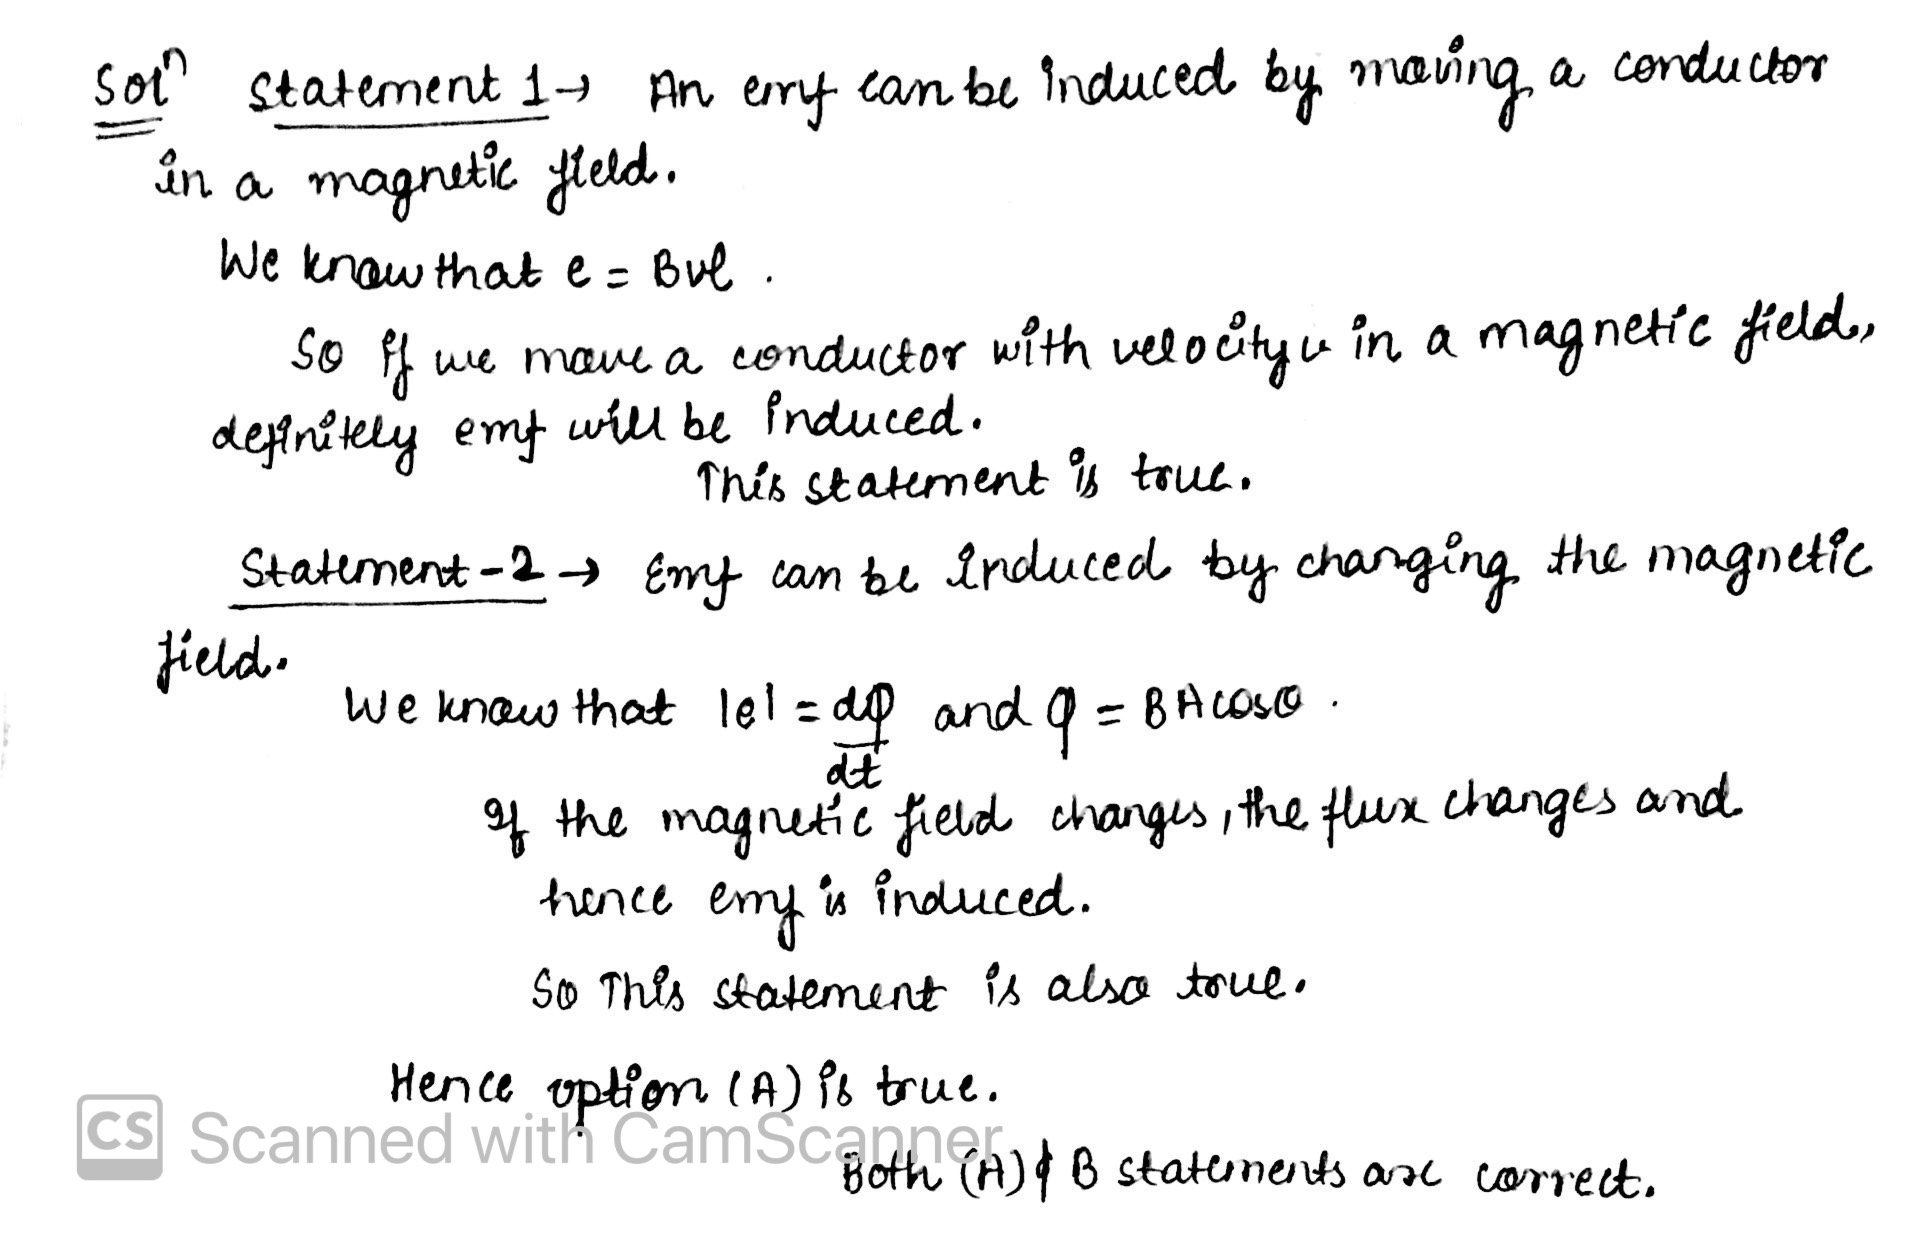 Solⁿ Statement 1 → An emf can be induced by moving a conductor
in a magnetic field.
We know that e = Bvl .
So if we move a conductor with velocity v in a magnetic field,
definitely emf will be induced.
This statement is true.
Statement - 2 → Emf can be induced by changing the magnetic
field.
We know that |e| = dφ/dt and φ = BAcosθ .
If the magnetic field changes, the flux changes and
hence emf is induced.
So This statement is also true.
Hence option (A) is true.
CS Scanned with CamScanner
Both (A) & B statements are correct.